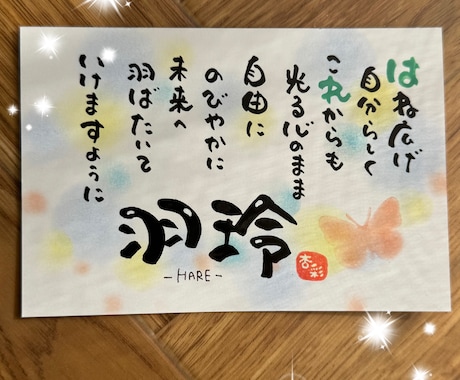 はね広げ
自分らしく
これからも
光る心のまま
自由に
のびやかに
未来へ
羽ばたいて
いけますように
羽玲
-HARE-
杏彩